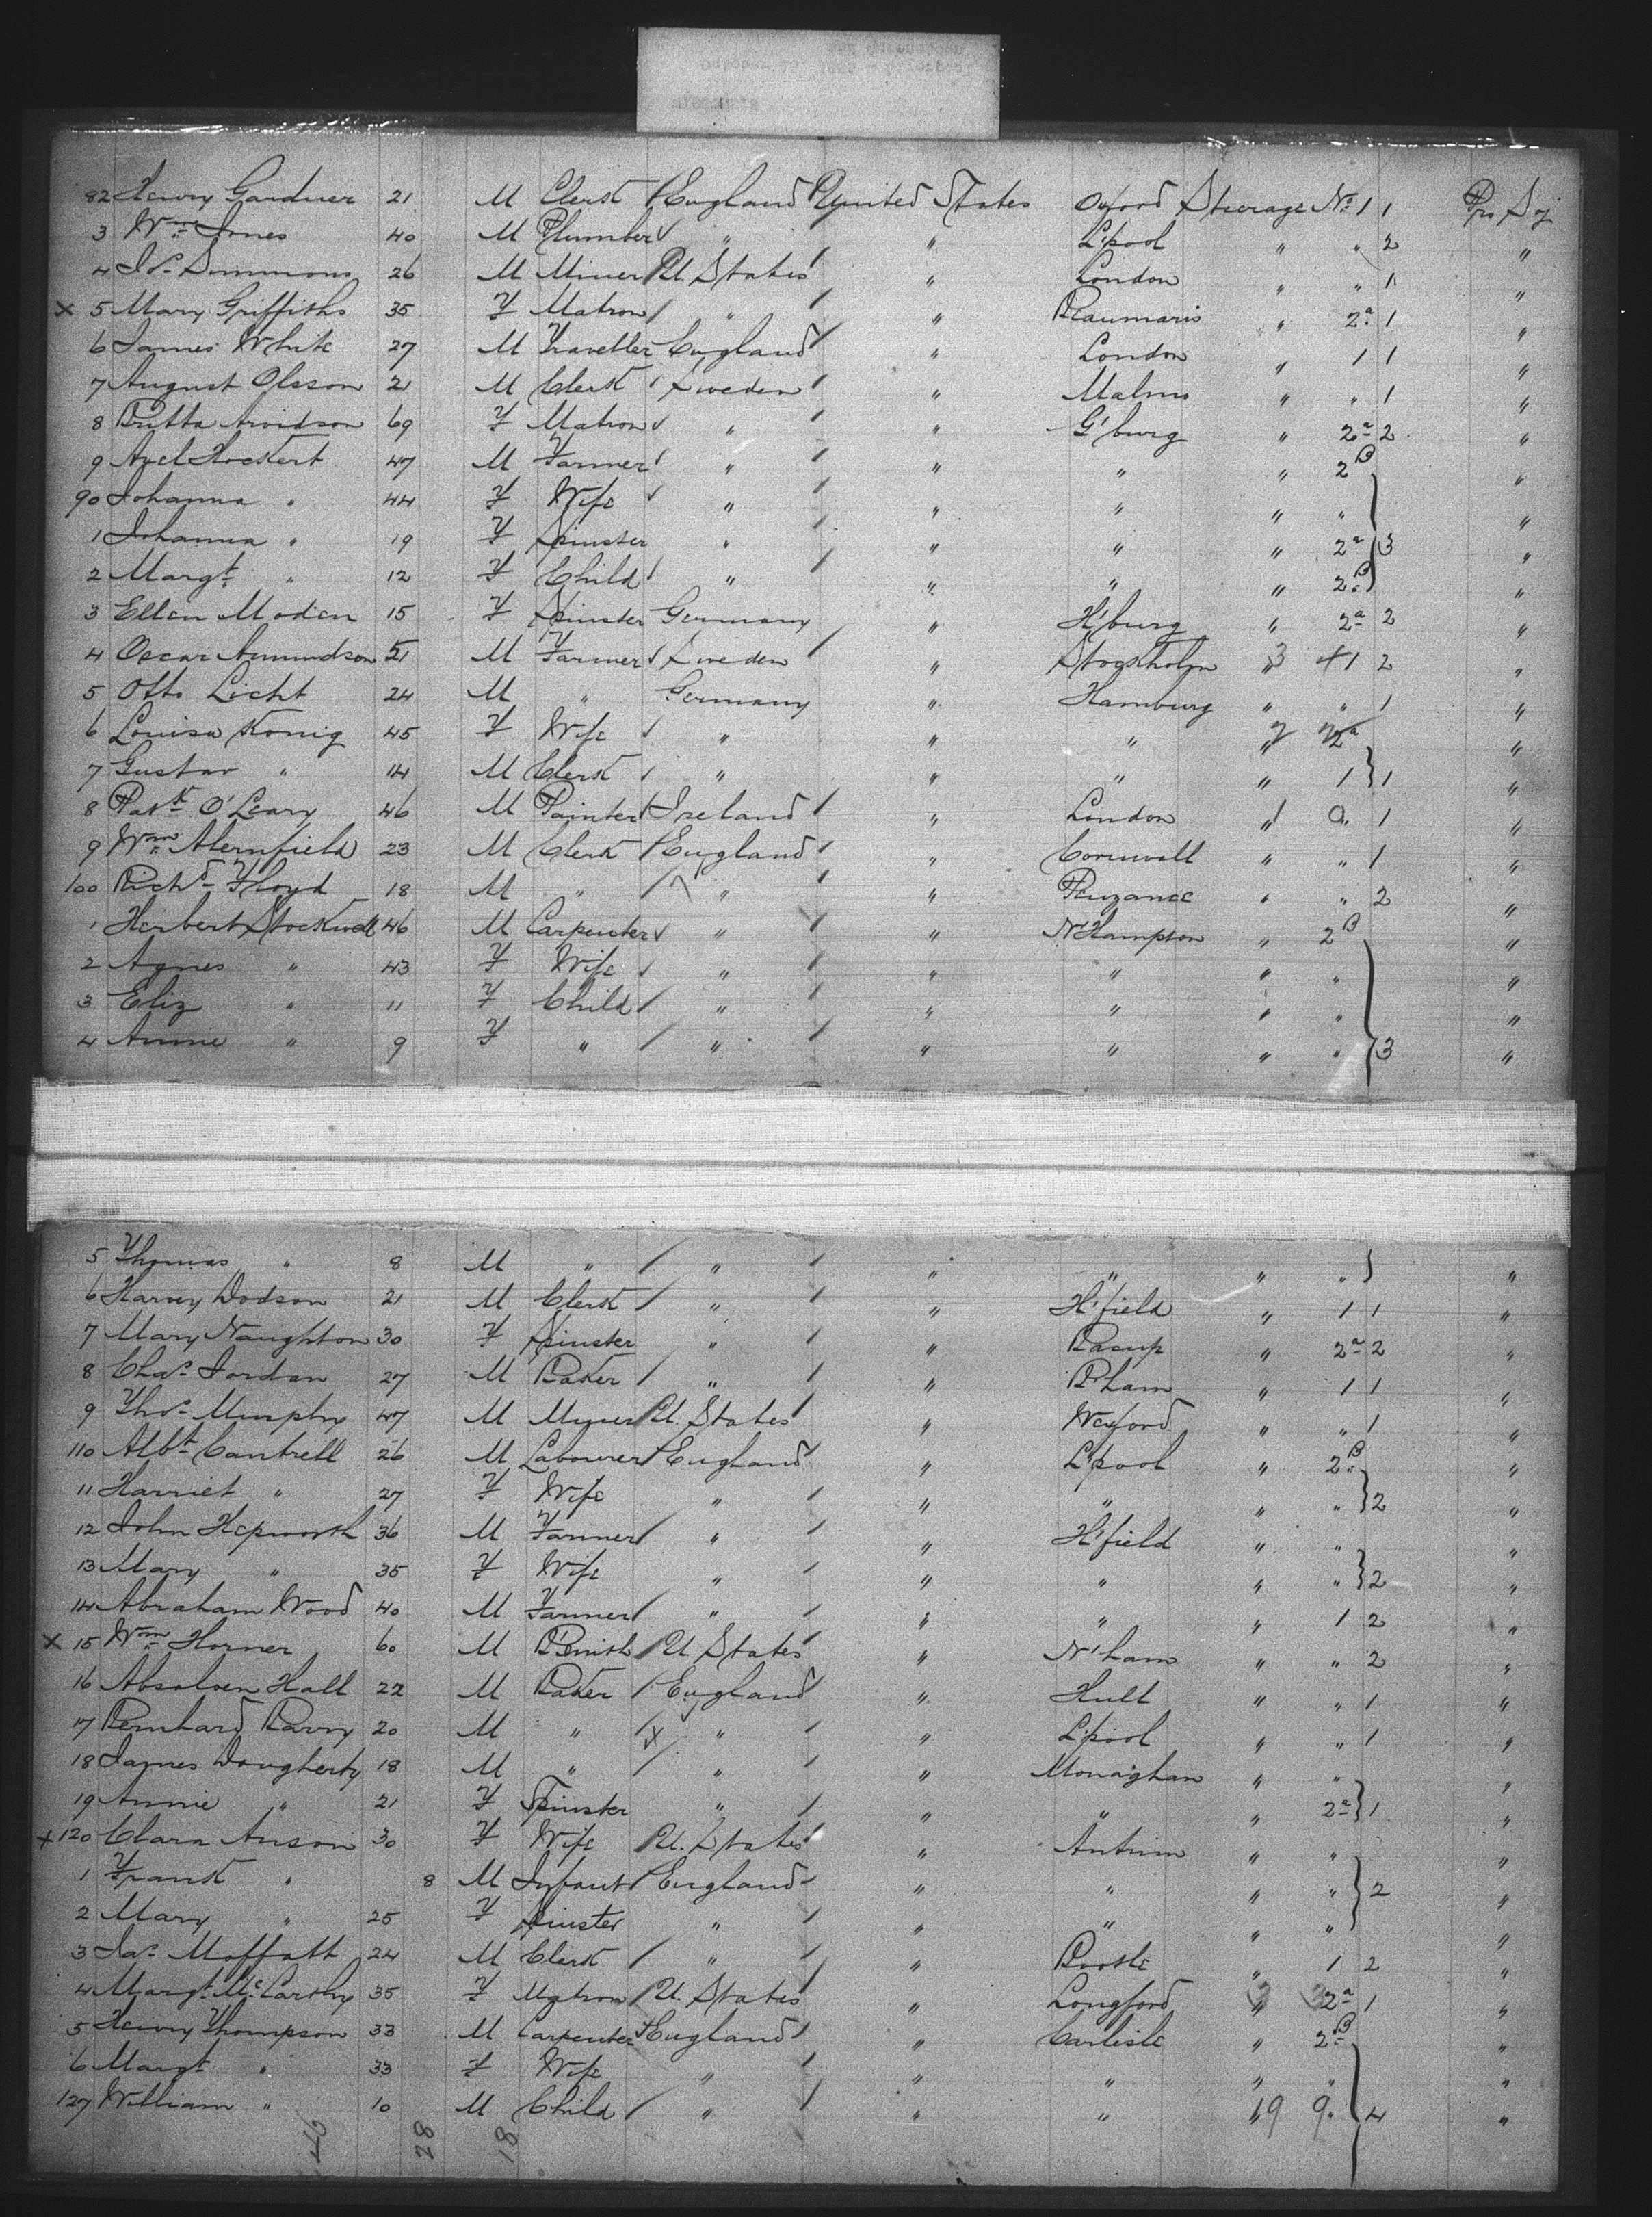 82 Henry Gardner 21 M Clerk England United States Oxford Steerage No 1 1 Pro Soj
3 Wm Jones 40 M Plumber " " L'pool " " 2 "
4 Jos Simmons 26 M Miner U. States " London " " 1 "
x 5 Mary Griffiths 35 F Matron " " Beaumaris " 2a 1 "
6 James White 27 M Traveller England " London " 1 1 "
7 August Olsson 21 M Clerk Sweden " Malmo " " 1 "
8 Britta Arvidson 69 F Matron " " G'burg " 2a 2 "
9 Axel Hockert 47 M Farmer " " " " 2B "
90 Johanna " 44 F Wife " " " " " "
1 Johanna " 19 F Spinster " " " " 2a 3 "
2 Margt " 12 F Child " " " " 2B "
3 Ellen Modien 15 F Spinster Germany " H'burg " 2a 2 "
4 Oscar Amundson 21 M Farmer Sweden " Stockholm " 1 2 "
5 Otto Licht 24 M " Germany " Hamburg " " 1 "
6 Louisa Konig 45 F Wife " " " " 2a "
7 Gustav " 14 M Clerk " " " " 1 1 "
8 Patk O'Leary 46 M Painter Ireland " London " " 1 "
9 Wm Abernfield 23 M Clerk England " Cornwall " " 1 "
100 Richd Floyd 18 M " " " Penzance " " 2 "
1 Herbert Stockwell 46 M Carpenter " " N'Hampton " 2B "
2 Agnes " 43 F Wife " " " " " "
3 Eliz " 11 F Child " " " " " "
4 Annie " 9 F " " " " " " 3 "
5 Thomas " 8 M " " " " " " "
6 Harvey Dodson 21 M Clerk " " H'field " 1 1 "
7 Mary Naughton 30 F Spinster " " Bacup " 2a 2 "
8 Chas Jordan 27 M Baker " " B'ham " 1 1 "
9 Thos Murphy 47 M Miner U. States " Wexford " " 1 "
110 Albt Cantrell 26 M Labourer England " L'pool " 2B "
11 Harriet " 27 F Wife " " " " " 2 "
12 John Hepworth 36 M Farmer " " H'field " " "
13 Mary " 35 F Wife " " " " " 2 "
14 Abraham Wood 40 M Farmer " " " " 1 2 "
x 15 Wm Horner 60 M B'Smith U States " N'ham " " 2 "
16 Absolven Hall 22 M Baker England " Hull " " 1 "
17 Bernhard Barry 20 M " x " " L'pool " " 1 "
18 James Dougherty 18 M " " " Monaghan " " "
19 Annie " 21 F Spinster " " " " 2a 1 "
x 120 Clara Anson 30 F Wife U. States " Antrim " " "
1 Frank " 8 M Infant England " " " " 2 "
2 Mary " 25 F Spinster " " " " " "
3 Jas Moffatt 24 M Clerk " " Bootle " 1 2 "
4 Margt McCarthy 35 F Matron U. States " Longford " 2a 1 "
5 Henry Thompson 33 M Carpenter England " Carlisle " 2B "
6 Margt " 33 F Wife " " " " " "
127 William " 10 M Child " " " 19 9 4 "
28 18